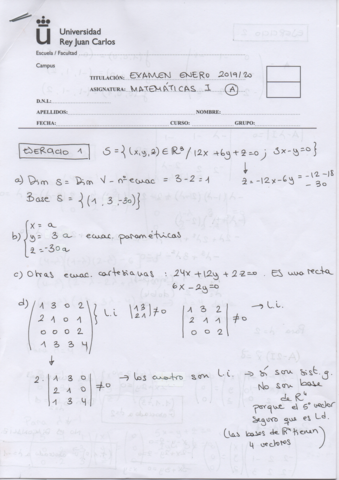 Universidad
Rey Juan Carlos
Escuela / Facultad
Campus
TITULACIÓN: EXAMEN ENERO 2019/20
ASIGNATURA: MATEMÁTICAS I (A)
D.N.I.:
APELLIDOS: NOMBRE:
FECHA: CURSO: GRUPO:
EJERCICIO 1 S={(x,y,z)∈R³/12x+6y+z=0; 3x-y=0}
↓
z=-12x-6y=-12-18
-30
a) Dim S = Dim V - nº ecuac = 3-2=1
Base S = {(1, 3, -30)}
b) { x = a
y = 3a ecuac. paramétricas
z = -30a
c) Otras ecuac. cartesianas: 24x+12y+2z=0. Es una recta
6x-2y=0
d) (1 3 0 2
2 1 0 1
0 0 0 2
1 3 3 4) } L.i |1 3
2 1| ≠0 |1 3 2
2 1 1
0 0 2| ≠0 → L.i.
↓
2. |1 3 0
2 1 0
1 3 4| ≠0 → los cuatro son L.i. → Sí son sist. g.
No son base
de R⁴
porque el 5º vector
seguro que es L.d.
(las bases de R⁴ tienen
4 vectores)